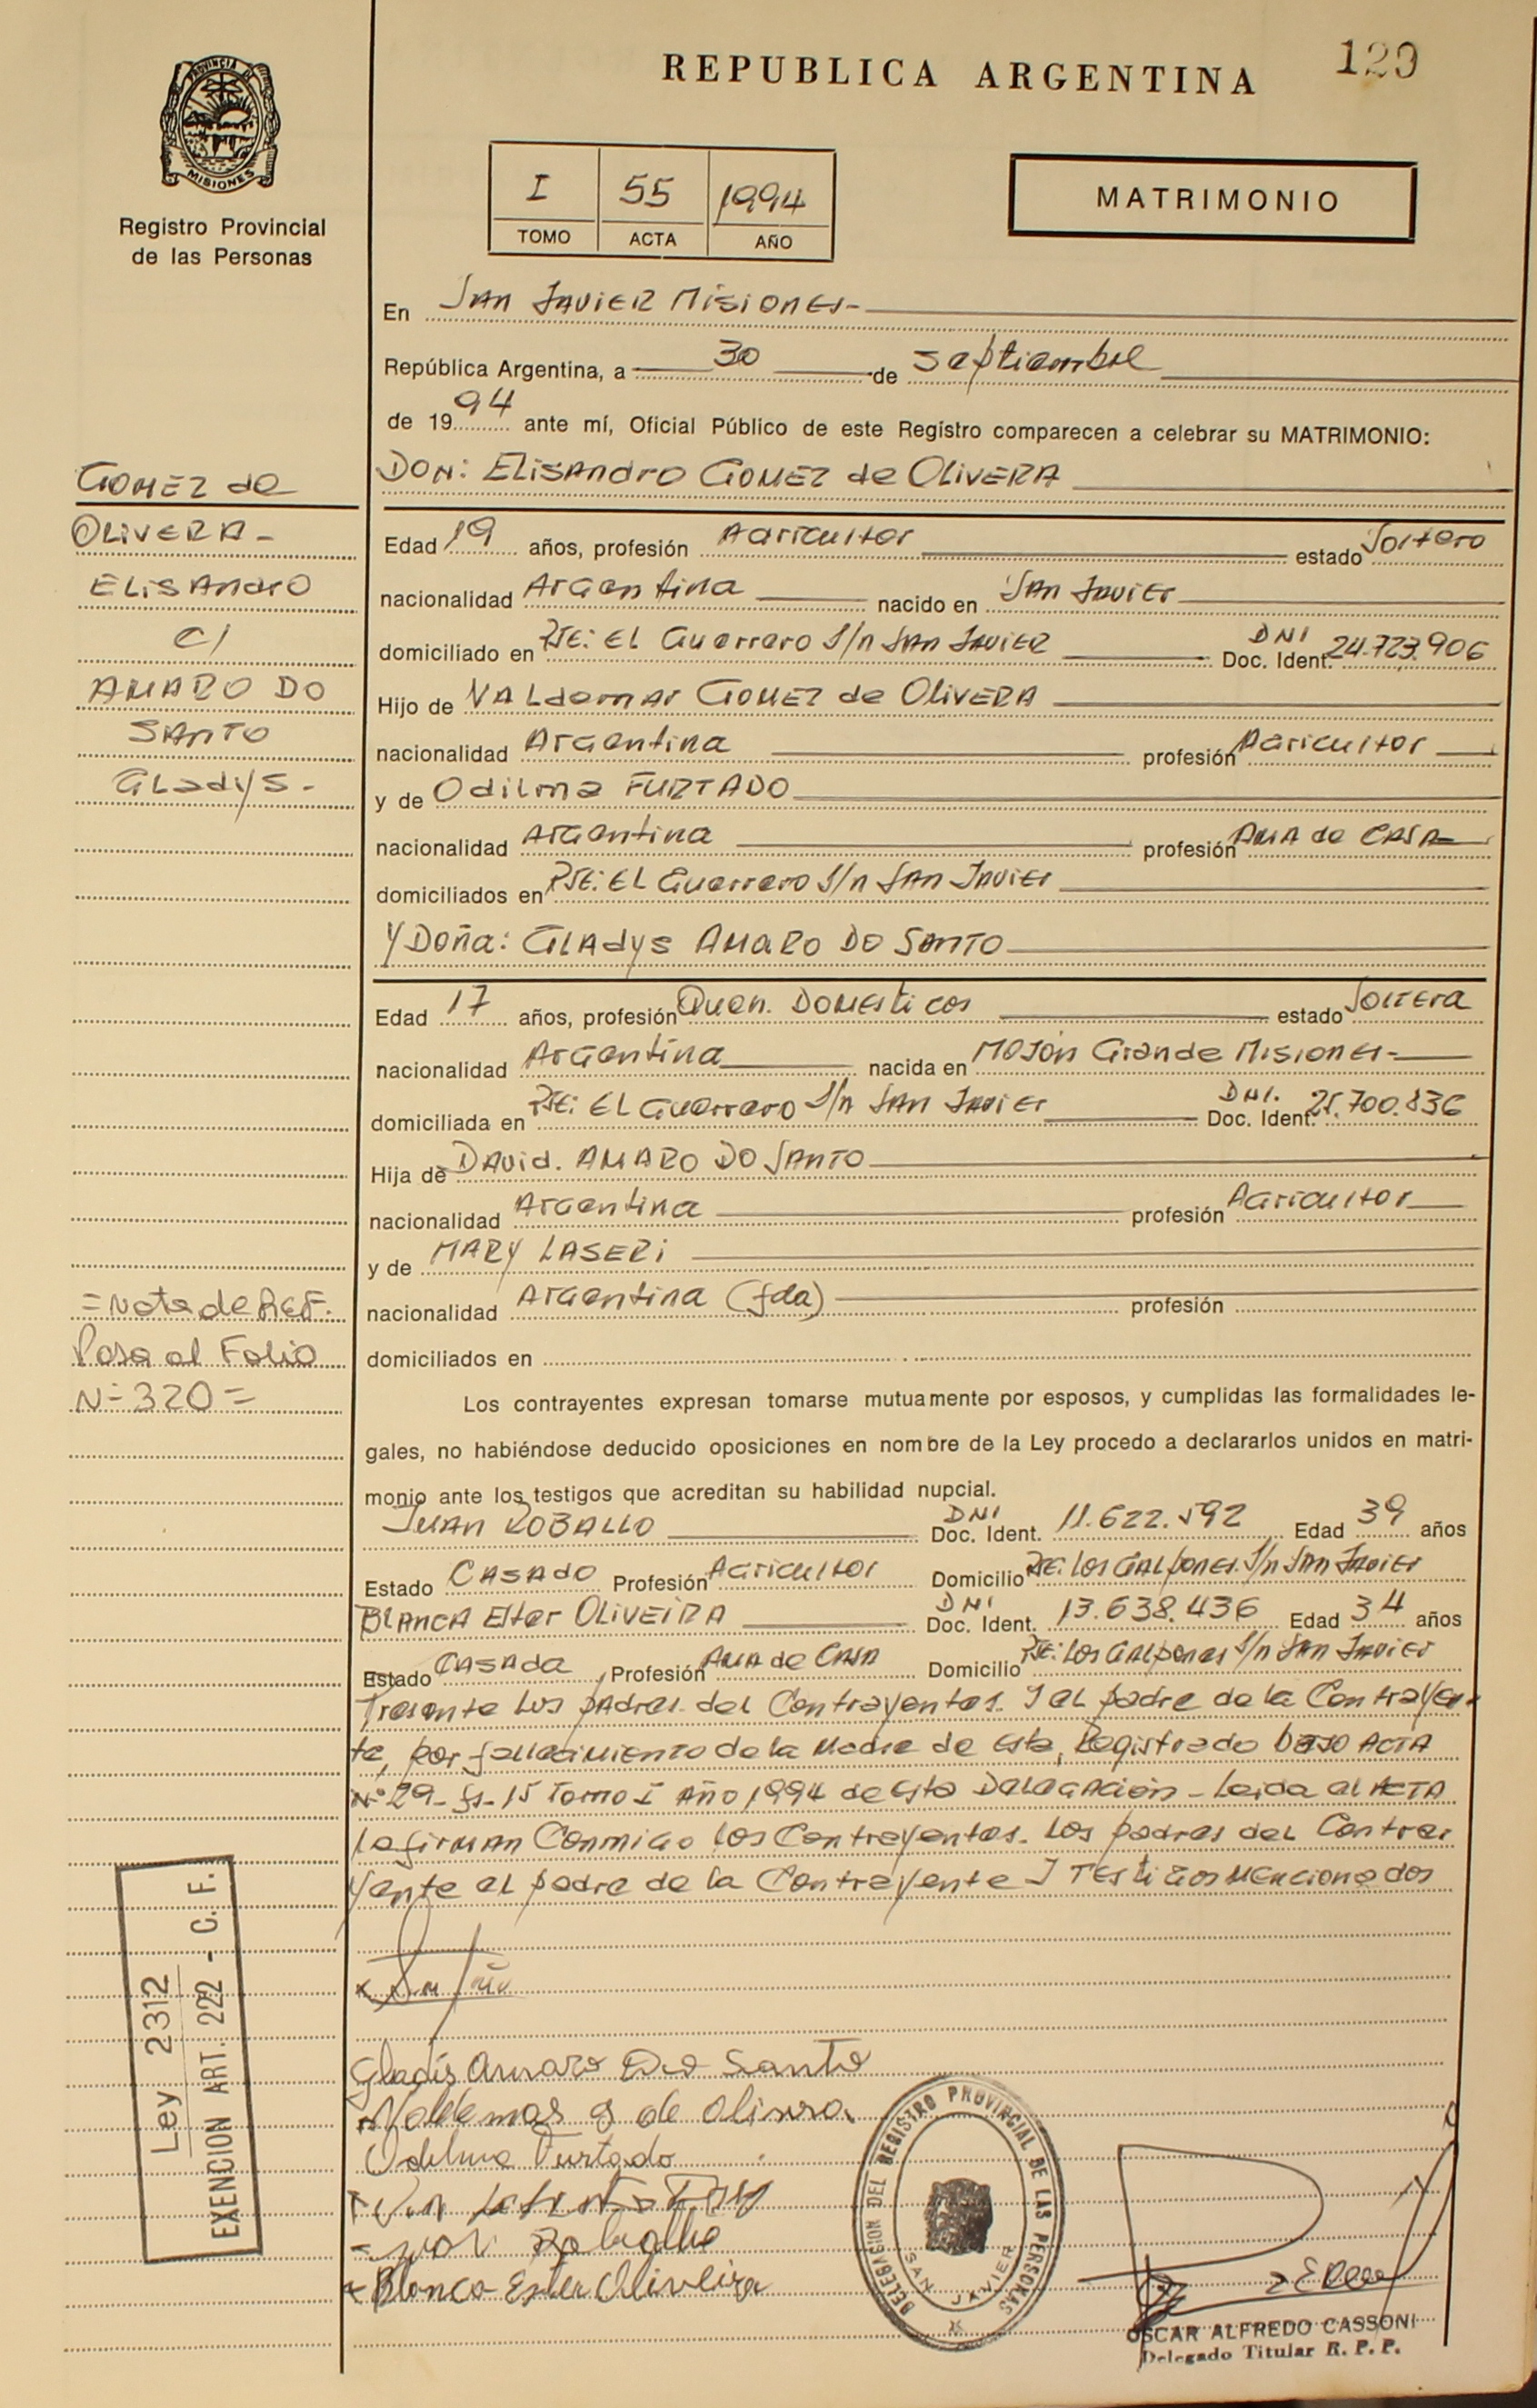 REPUBLICA ARGENTINA
129
PROVINCIA DE
MISIONES
Registro Provincial
de las Personas
I 55 1994
TOMO ACTA AÑO
MATRIMONIO
En San Javier Misiones-
República Argentina, a 30 de septiembre
de 1994 ante mí, Oficial Público de este Registro comparecen a celebrar su MATRIMONIO:
DON: Elisandro GOMEZ de OLIVERA
GOMEZ de
OLIVERA-
ELisandro
C/
AMARO DO
SANTO
GLadys-
Edad 19 años, profesión Agricultor estado Soltero
nacionalidad Argentina nacido en San Javier
domiciliado en Pje: EL Guerrero S/n San Javier DNI Doc. Ident. 24.723.906
Hijo de VALdemar GOMEZ de OLIVERA
nacionalidad Argentina profesión Agricultor
y de Odilma FURTADO
nacionalidad Argentina profesión AMA de CASA
domiciliados en Pje: EL Guerrero S/n San Javier
Y Doña: GLAdys AMARO DO SANTO
Edad 17 años, profesión Quen. Domesticos estado Soltera
nacionalidad Argentina nacida en Mojón Grande Misiones-
domiciliada en Pje: EL Guerrero S/n San Javier DNI. Doc. Ident. 25.700.836
Hija de David. AMARO DO SANTO
nacionalidad Argentina profesión Agricultor
y de MARY LASERI
nacionalidad Argentina (fda) profesión
domiciliados en
=Nota de REF.
Pasa al Folio
Nº 320=
Los contrayentes expresan tomarse mutuamente por esposos, y cumplidas las formalidades le-
gales, no habiéndose deducido oposiciones en nombre de la Ley procedo a declararlos unidos en matri-
monio ante los testigos que acreditan su habilidad nupcial.
Juan ROBALLO DNI Doc. Ident. 11.622.592 Edad 39 años
Estado CASADO Profesión Agricultor Domicilio Pje: Los GALpones S/n San Javier
BLANCA Ester OLIVEIRA DNI Doc. Ident. 13.638.436 Edad 34 años
Estado CASAda Profesión AMA de CASA Domicilio Pje: Los GALpones S/n San Javier
Presente Los padres del Contrayentes. Y el padre de la Contrayen-
te, por fallecimiento de la Madre de esta, Registrado bajo ACTA
Nº 29- fs- 15 Tomo I Año 1994 de esta Delegación- Leida el ACTA
La firman Conmigo los Contrayentes. Los padres del Contra
yente el padre de la Contrayente Y Testigos Mencionados
Gladis Amaro Do Santo
Valdemar g de olivera
Odelma Furtado
Blanca Ester Oliveira
Ley 2312
EXENCION ART. 222 - C. F.
DELEGACION DEL REGISTRO PROVINCIAL DE LAS PERSONAS
SAN JAVIER
OSCAR ALFREDO CASSONI
Delegado Titular R. P. P.